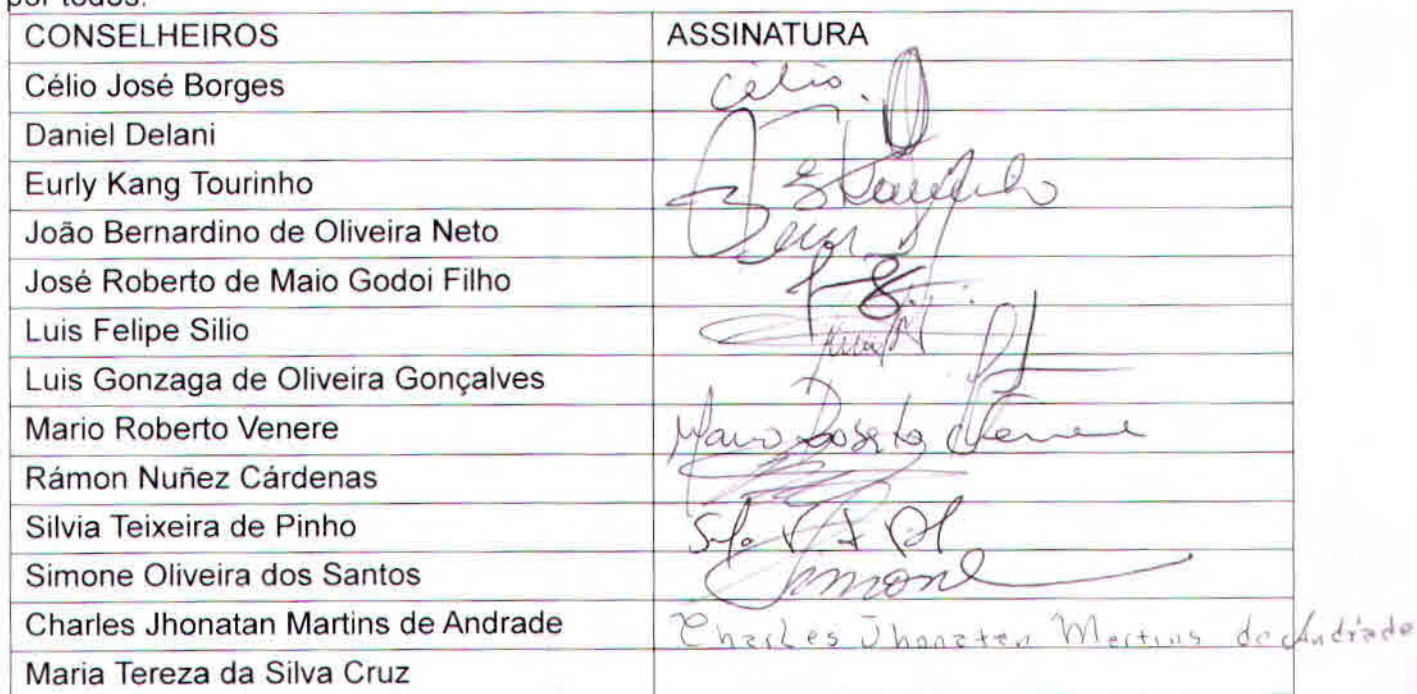 por todos.
CONSELHEIROS ASSINATURA
Célio José Borges Célio.
Daniel Delani
Eurly Kang Tourinho
João Bernardino de Oliveira Neto
José Roberto de Maio Godoi Filho
Luis Felipe Silio
Luis Gonzaga de Oliveira Gonçalves
Mario Roberto Venere Mario Roberto Venere
Rámon Nuñez Cárdenas
Silvia Teixeira de Pinho
Simone Oliveira dos Santos Simone
Charles Jhonatan Martins de Andrade Charles Jhonatan Martins de Andrade
Maria Tereza da Silva Cruz